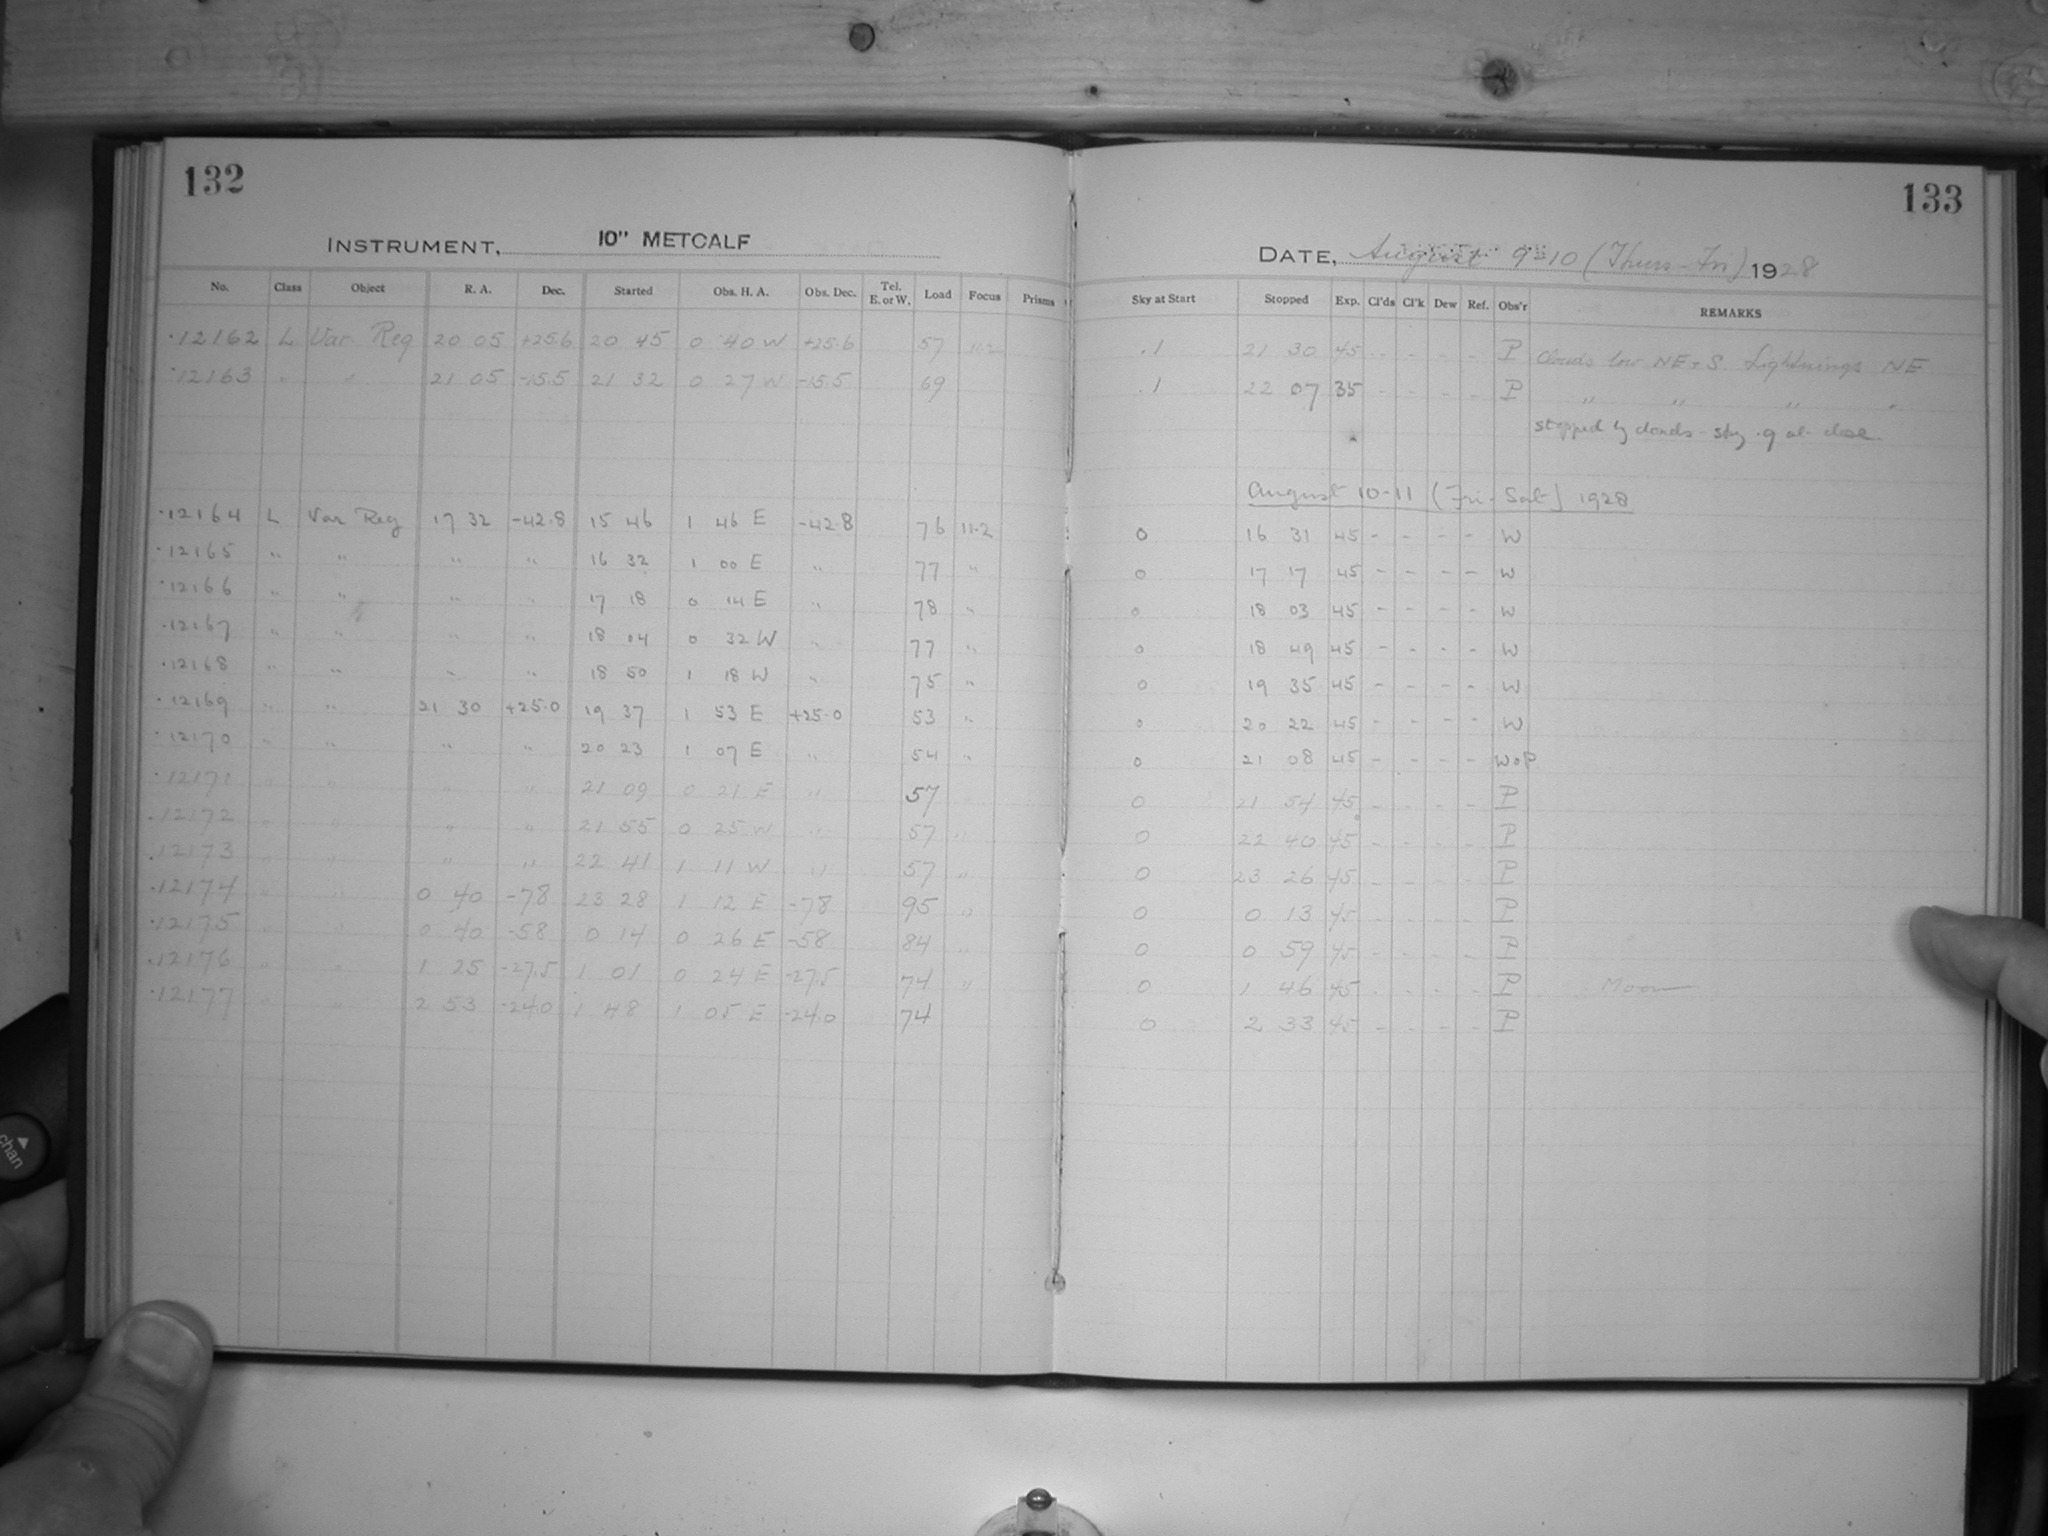 132
133
INSTRUMENT, 10" METCALF
DATE, August 9-10 (Thurs-Fri) 1928
No. Class Object R. A. Dec. Started Obs. H. A. Obs. Dec. Tel. E. or W. Load Focus Prisms Sky at Start Stopped Exp. Cl'ds Cl'k Dew Ref. Obs'r REMARKS
·12162 L Var Reg 20 05 +25.6 20 45 0 40 W +25.6 57 11.2 .1 21 30 45 - - - - P Clouds low NE + S. Lightnings NE
·12163 " " 21 05 -15.5 21 32 0 27 W -15.5 69 .1 22 07 35 - - - - P " " " "
stopped by clouds - sky .9 at close
August 10-11 (Fri-Sat) 1928
·12164 L Var Reg 17 32 -42.8 15 46 1 46 E -42.8 76 11.2 0 16 31 45 - - - - W
·12165 " " " " 16 32 1 00 E " 77 " 0 17 17 45 - - - - W
·12166 " " " " 17 18 0 14 E " 78 " 0 18 03 45 - - - - W
·12167 " " " " 18 04 0 32 W " 77 " 0 18 49 45 - - - - W
·12168 " " " " 18 50 1 18 W " 75 " 0 19 35 45 - - - - W
·12169 " " 21 30 +25.0 19 37 1 53 E +25.0 53 " 0 20 22 45 - - - - W
·12170 " " " " 20 23 1 07 E " 54 " 0 21 08 45 - - - - W&P
·12171 " " " " 21 09 0 21 E " 57 0 21 54 45 - - - - P
·12172 " " " " 21 55 0 25 W " 57 " 0 22 40 45 - - - - P
·12173 " " " " 22 41 1 11 W " 57 " 0 23 26 45 - - - - P
·12174 " " 0 40 -78 23 28 1 12 E -78 95 " 0 0 13 45 - - - - P
·12175 " " 0 40 -58 0 14 0 26 E -58 84 " 0 0 59 45 - - - - P
·12176 " " 1 25 -27.5 1 01 0 24 E -27.5 74 " 0 1 46 45 - - - - P Moon
·12177 " " 2 53 -24.0 1 48 1 05 E -24.0 74 0 2 33 45 - - - - P
chan